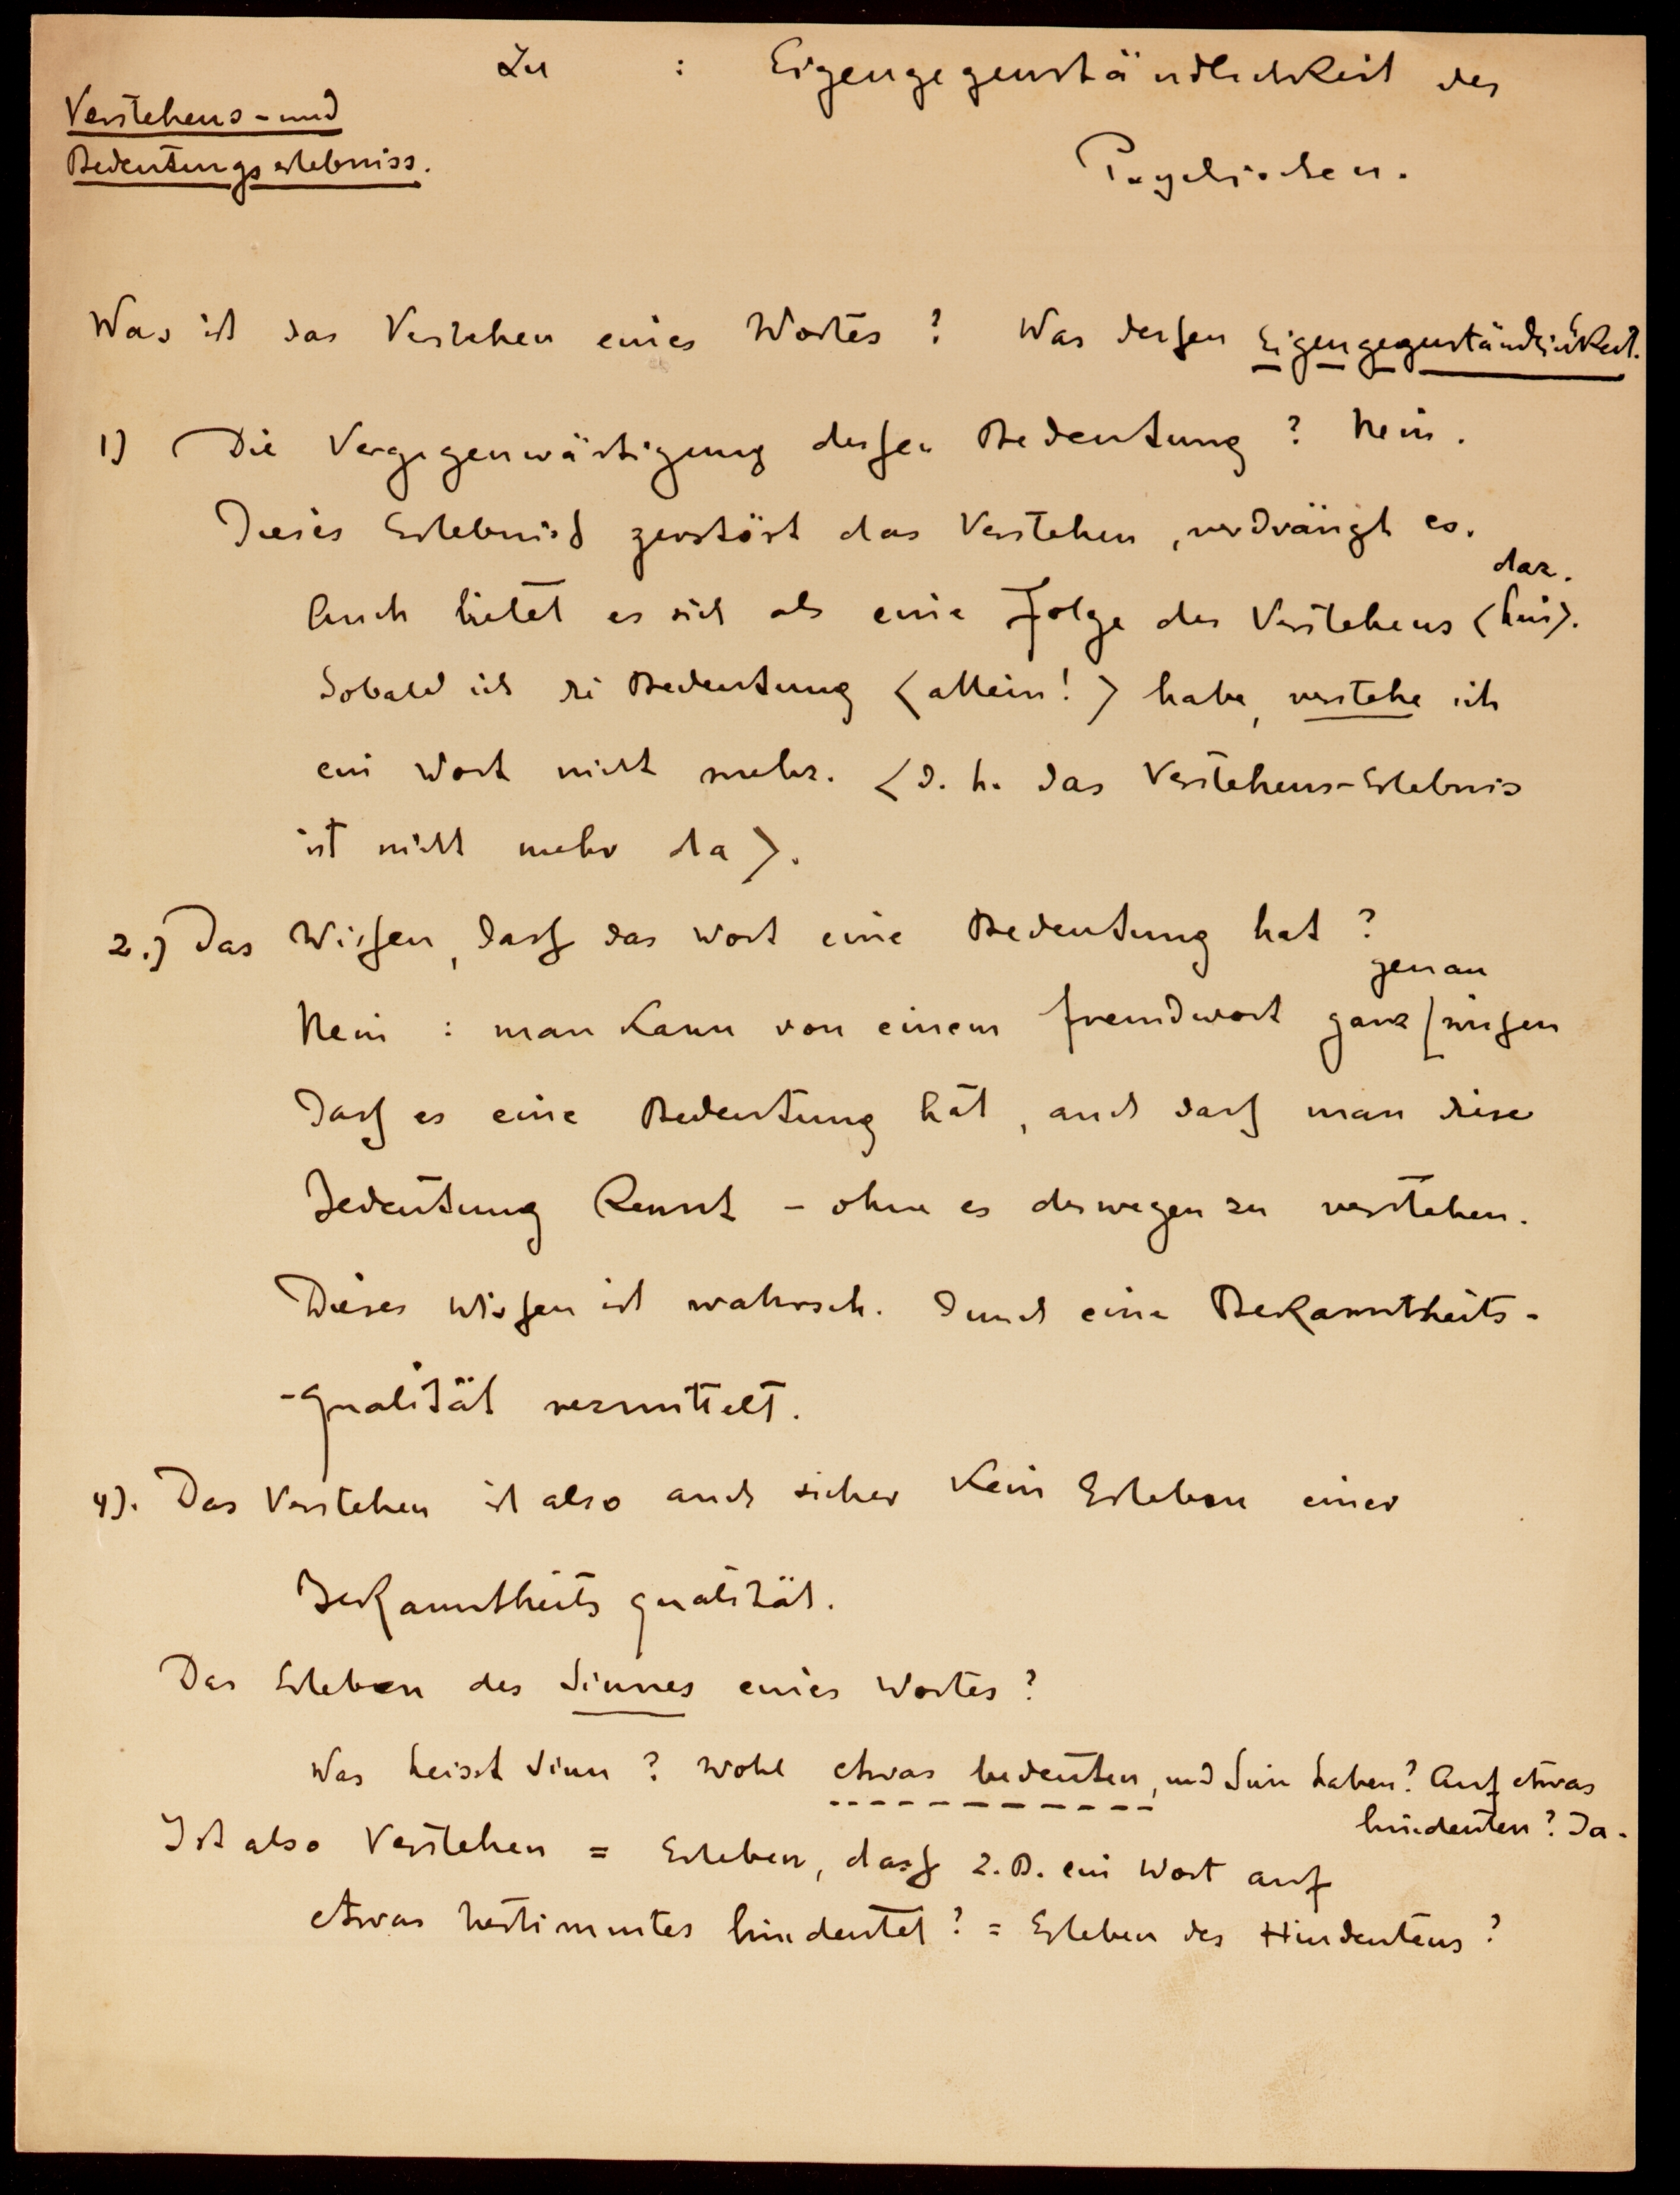 Zu : Eigengegenständlichkeit des
Psychischen.
Verstehens-und
Bedeutungserlebniss.
Was ist das Verstehen eines Wortes? Was dessen Eigengegenständlichkeit.
1) Die Vergegenwärtigung dessen Bedeutung? Nein.
Dieses Erlebniss zerstört das Verstehen, verdrängt es.
dar.
Auch bietet es sich als eine Folge des Verstehens <hin>.
Sobald ich die Bedeutung <allein!> habe, verstehe ich
ein Wort nicht mehr. <d. h. das Verstehens-Erlebnis
ist nicht mehr da>.
2.) Das Wissen, dass das Wort eine Bedeutung hat?
genau
Nein : man kann von einem Fremdwort ganz wissen
dass es eine Bedeutung hat, auch dass man diese
Bedeutung kennt - ohne es deswegen zu verstehen.
Dieses Wissen ist wahrsch. durch eine Bekanntheits-
-qualität vermittelt.
4). Das Verstehen ist also auch sicher kein Erleben einer
Bekanntheitsqualität.
Das Erleben des Sinnes eines Wortes?
Was heisst Sinn? Wohl etwas bedeuten, und Sinn haben? Auf etwas
hindeuten? Ja.
Ist also Verstehen = Erleben, dass z.B. ein Wort auf
etwas bestimmtes hindeutet? = Erleben des Hindeutens?